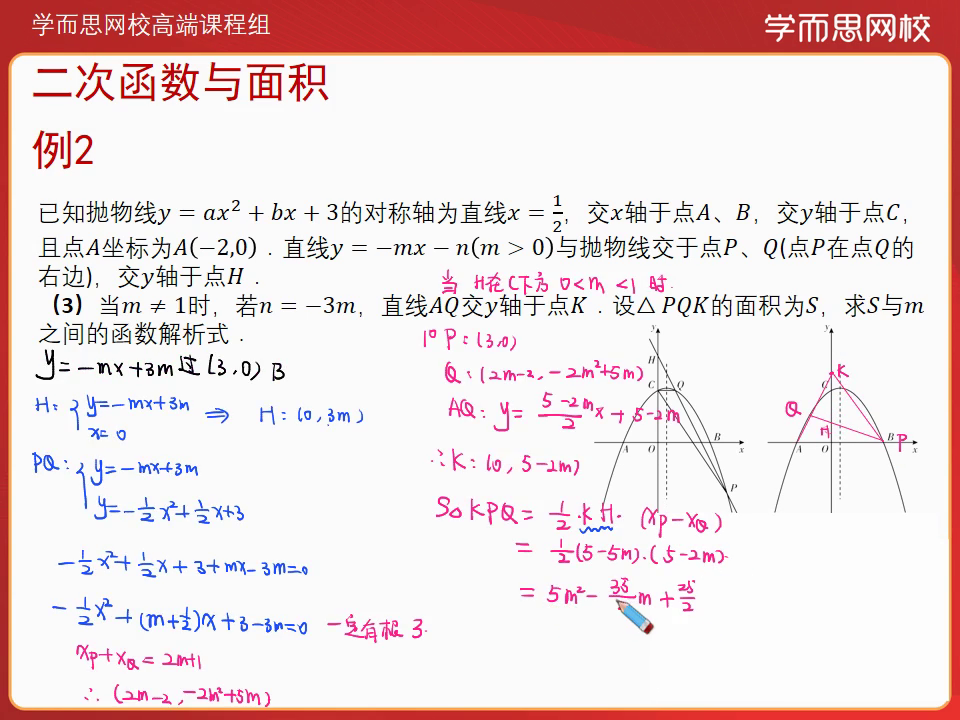 学而思网校高端课程组
学而思网校
二次函数与面积
例2
已知抛物线y = ax² + bx + 3的对称轴为直线x = 1/2，交x轴于点A、B，交y轴于点C，
且点A坐标为A(−2,0)．直线y = −mx − n(m > 0)与抛物线交于点P、Q(点P在点Q的
右边)，交y轴于点H．
当 H在C下方 0<m<1 时.
（3）当m ≠ 1时，若n = −3m，直线AQ交y轴于点K．设△PQK的面积为S，求S与m
之间的函数解析式．
y=-mx+3m过(3,0) B
H: { y=-mx+3m
x=0
⇒ H:(0,3m)
PQ: { y=-mx+3m
y=-1/2x²+1/2x+3
-1/2x²+1/2x+3+mx-3m=0
-1/2x²+(m+1/2)x+3-3m=0 一定有根 3.
xP+xQ=2m+1
∴(2m-2,-2m²+5m)
1° P:(3,0)
Q:(2m-2,-2m²+5m)
AQ: y=(5-2m)/2x+5-2m
∴K:(0,5-2m)
S△KPQ=1/2·KH·(xP-xQ)
=1/2(5-5m)·(5-2m)
=5m²-35/2m+25/2
y
H
C
Q
A
O
B
x
P
y
K
C
Q
H
A
O
B
P
x